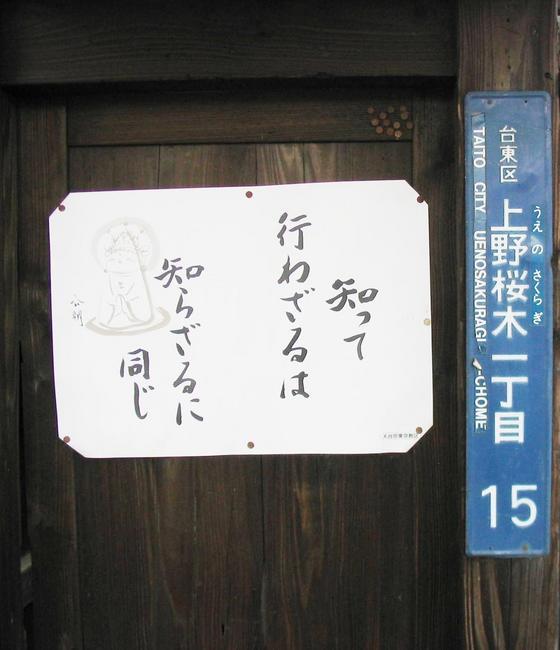 知って
行わざるは
知らざるに
同じ
天台宗東京教区
台東区
上野桜木一丁目
うえのさくらぎ
15
TAITO CITY UENOSAKURAGI
-CHOME